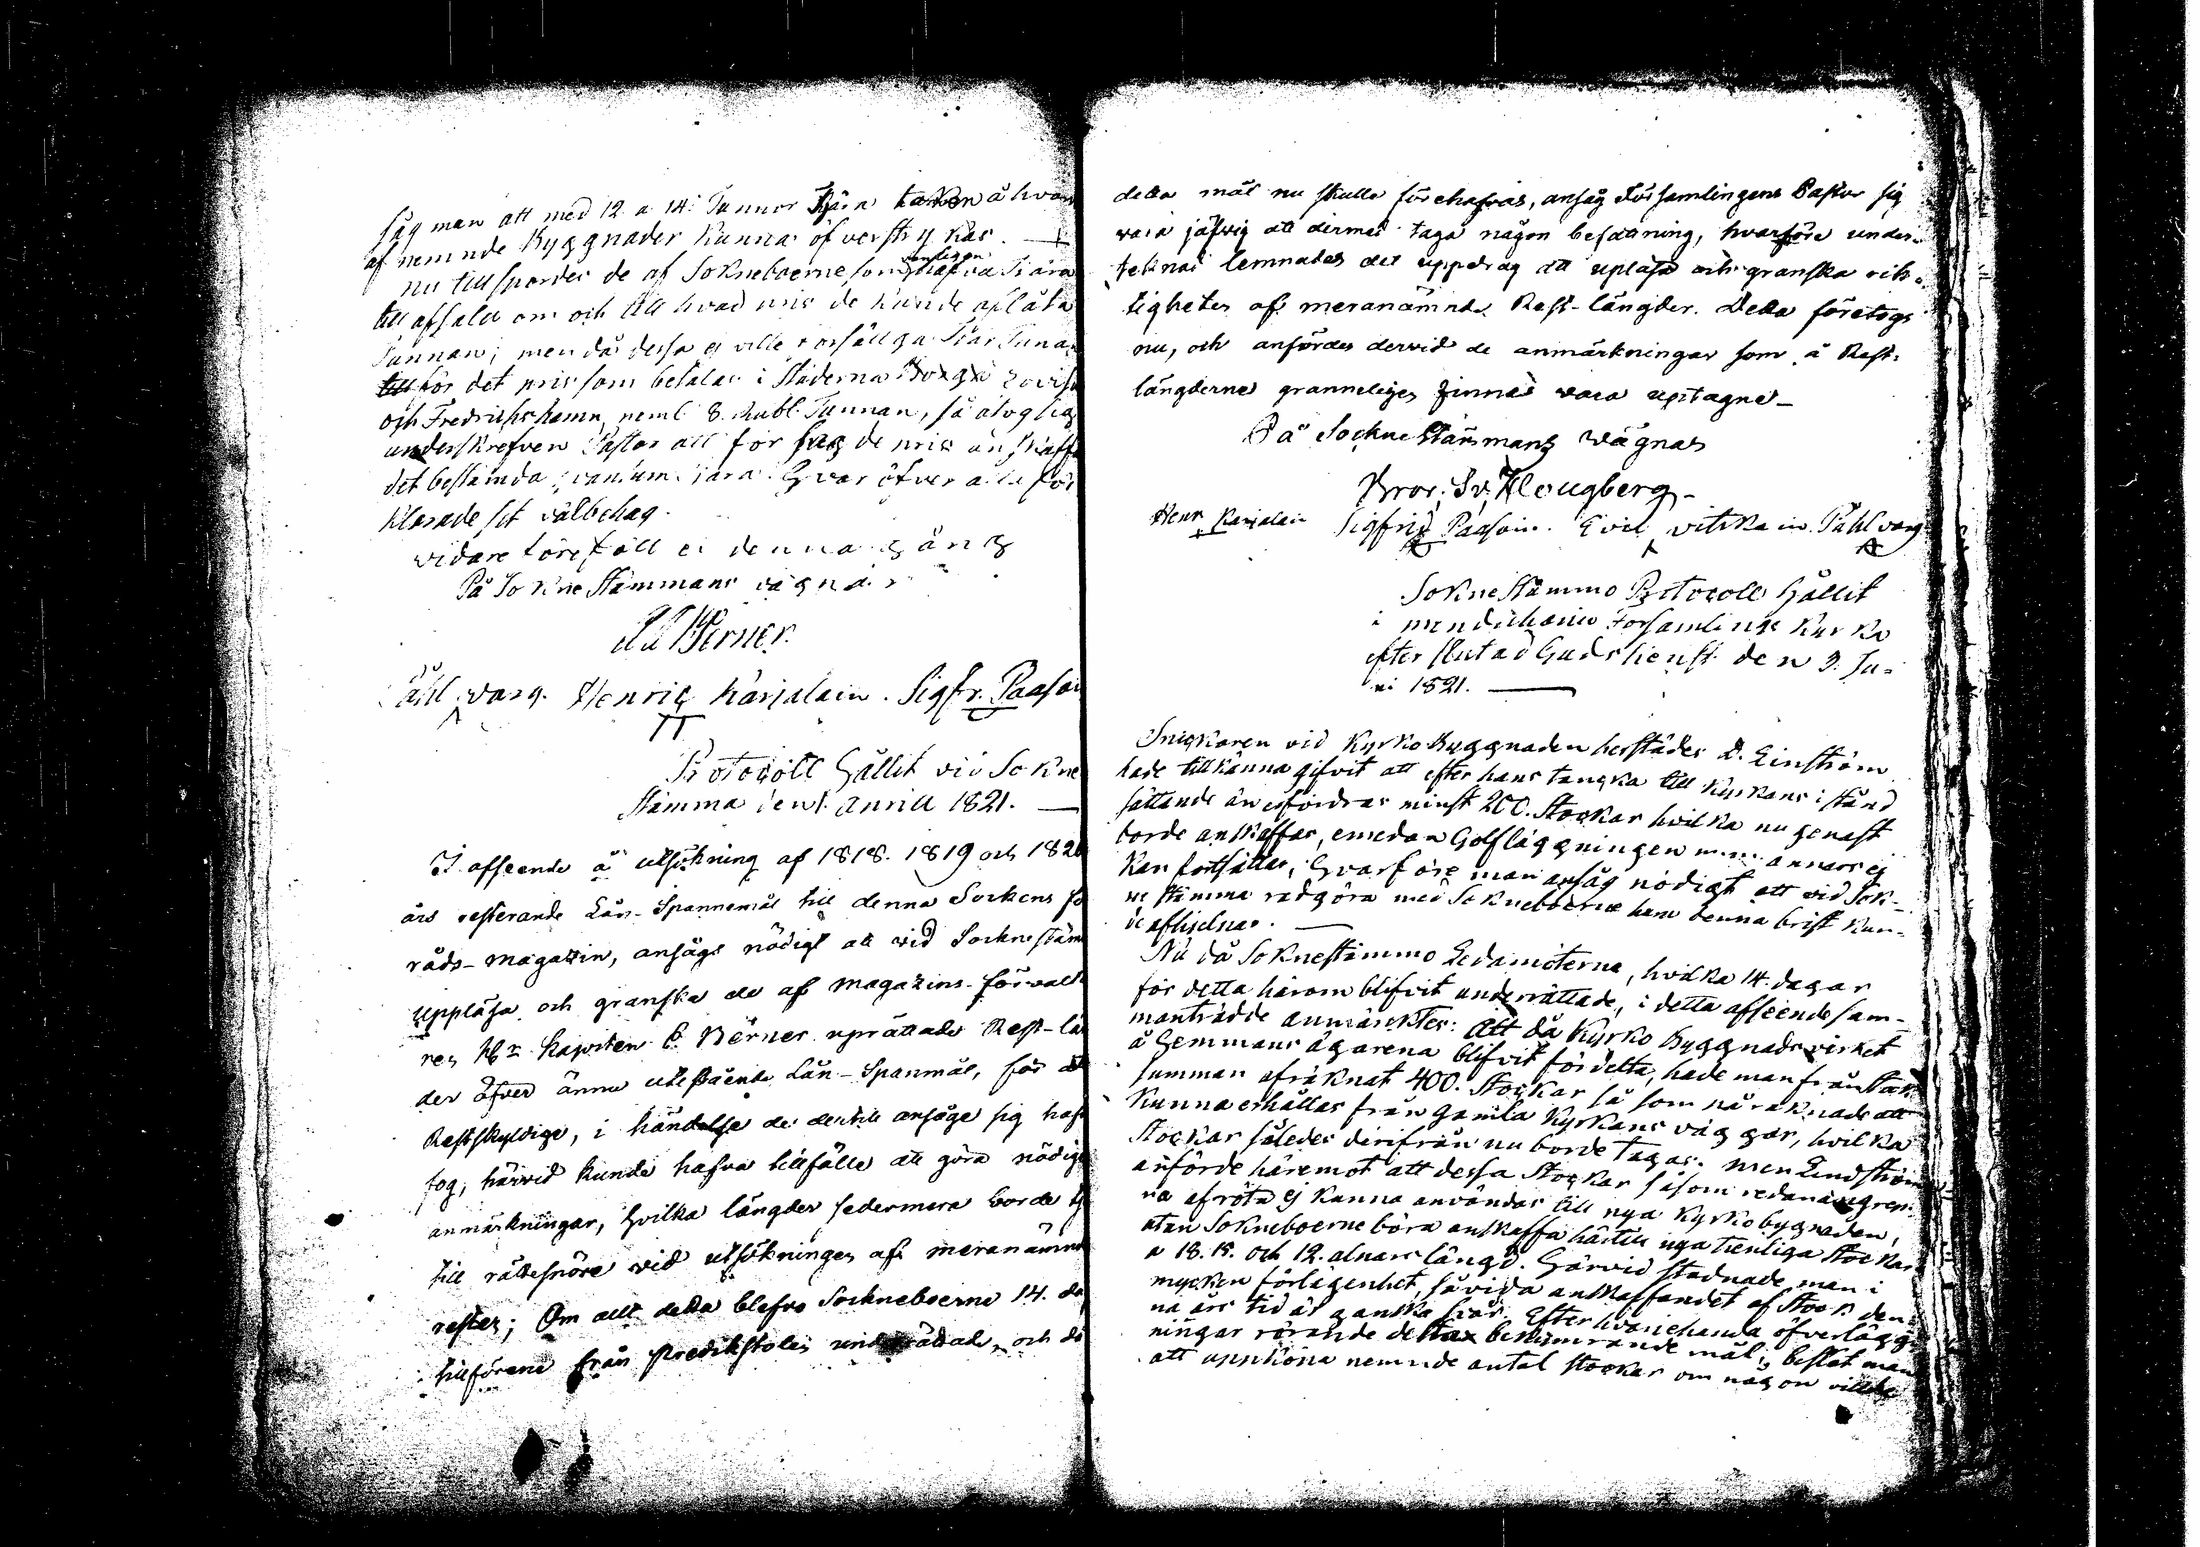 såg man att med 12 a 14 Tunnor Tjära taken å hvar
af nemnde Byggnader kunna öfverstrykas. —
nu tillspordes de af Sokneboerne, som vanligen hafva Tjära
till afsalu om och till hvad pris de kunde aflåta
Tunnan; men då dessa ej ville försällja Tjär Tunan
för det pris som betalas i Städerna Borgå Lovisa
och Fredrichshamn, neml 8. Rubl. Tunnan, så åtog sig
underskrefven Pastor att för sag de pris anskaffa
det bestämda qvantum Tjära. Hvaröfver alla för
klarade sit välbehag.
vidare föreföll ei denna gång
På Sokne Stämmans vägnar
Wörner.
Påhl Warg. Henric Karjalain. Sigfr. Paasoin
Protocoll hållit vid Sokne
Stämma den 1 Aprill 1821. —
I afseende å utsökning af 1818. 1819 och 1820
års resterande Lån-Spannemål till denna Sockens fö
råds-magazin, ansågs nödigt att vid Socknestäm
uppläsa och granska de af Magazins-förvalta
ren Hr Kapiten C. Wörner uprättade Rest-län
der öfver ännu utestående Lån-Spanmål, för att
Restskyldige, i händelse de dertill ansåge sig haf
fog, härvid kunde hafva tillfälle att göra nödiga
anmärkningar, hvilka längder sedermera borde tj
till rättesnöre vid utsökningen af meranämnde
rester; Om allt detta blefvo Sockneboerne 14. da
tillförene från Predikstolen underrättade, och då
detta mål nu skulle förehafvas, ansåg Församlingens Pastor sig
vara jäfvig att dermed taga någon befattning, hvarföre under-
teknad lemnades det uppdrag att upläsa och granska rik-
tigheten af meranämnde Rest-längder. Detta företogs
nu, och anfördes dervid de anmärkningar som å Rest-
längderne granneligen finnas vara uptagne —
På Sockne Stämmans wägnar
Bror. Sv. Hougberg —
Henr Karjalain Sigfrid Paasoin. Evil vitska in Påhl varg
Sokne Stämmo Protocoll hållit
i menduharju Församlings Kyrko
efter slutad Gudstienst den 9. Ju-
ni 1821. —
Snickaren vid Kyrko Byggnaden herstädes D. Einström
hade tillkänna gifvit att efter hans tancka till Kyrkans i stånd
sättande än erfordras minst 200. Stockar hvilka nu genast
borde anskaffas, emedan Golfläggningen m.m. annars ej
kan fortsättas, hvarföre man ansåg nödigt att vid Sok-
ne stämma rådgöra med Sokneboerne huru denna brist kun-
de afhjelpas. —
Nu då Soknestämmo Ledamöterna, hvilka 14. dagar
för detta härom blifvit underrättade, i detta afseende sam-
manträdde anmärktes: Att då Kyrko Byggnads virket
å Hemmans ägarena blifvit fördelta, hade man från Stock
summan afräknat 400. Stockar så som påräknade att
kunna erhållas från gamla Kyrkans väggar, hvilka
Stockar således derifrån nu borde tagas. men Lindström
anförde häremot att dessa Stockar såsom redan angrep-
na af röta ej kunna användas till nya Kyrkobygnaden,
utan Sokneboerne böra anskaffa härtill nya tienliga Stockar
a 18. 15. och 12. alnars längd. Härvid stadnade man i
mycken förlägenhet, såvida anskaffandet af Stock den-
na års tid är ganska svår. Efter hvarjehanda öfverlägg-
ningar rörande detta bekymrande mål; beslöt man
att uppköpa nemnde antal stockar om någon ville